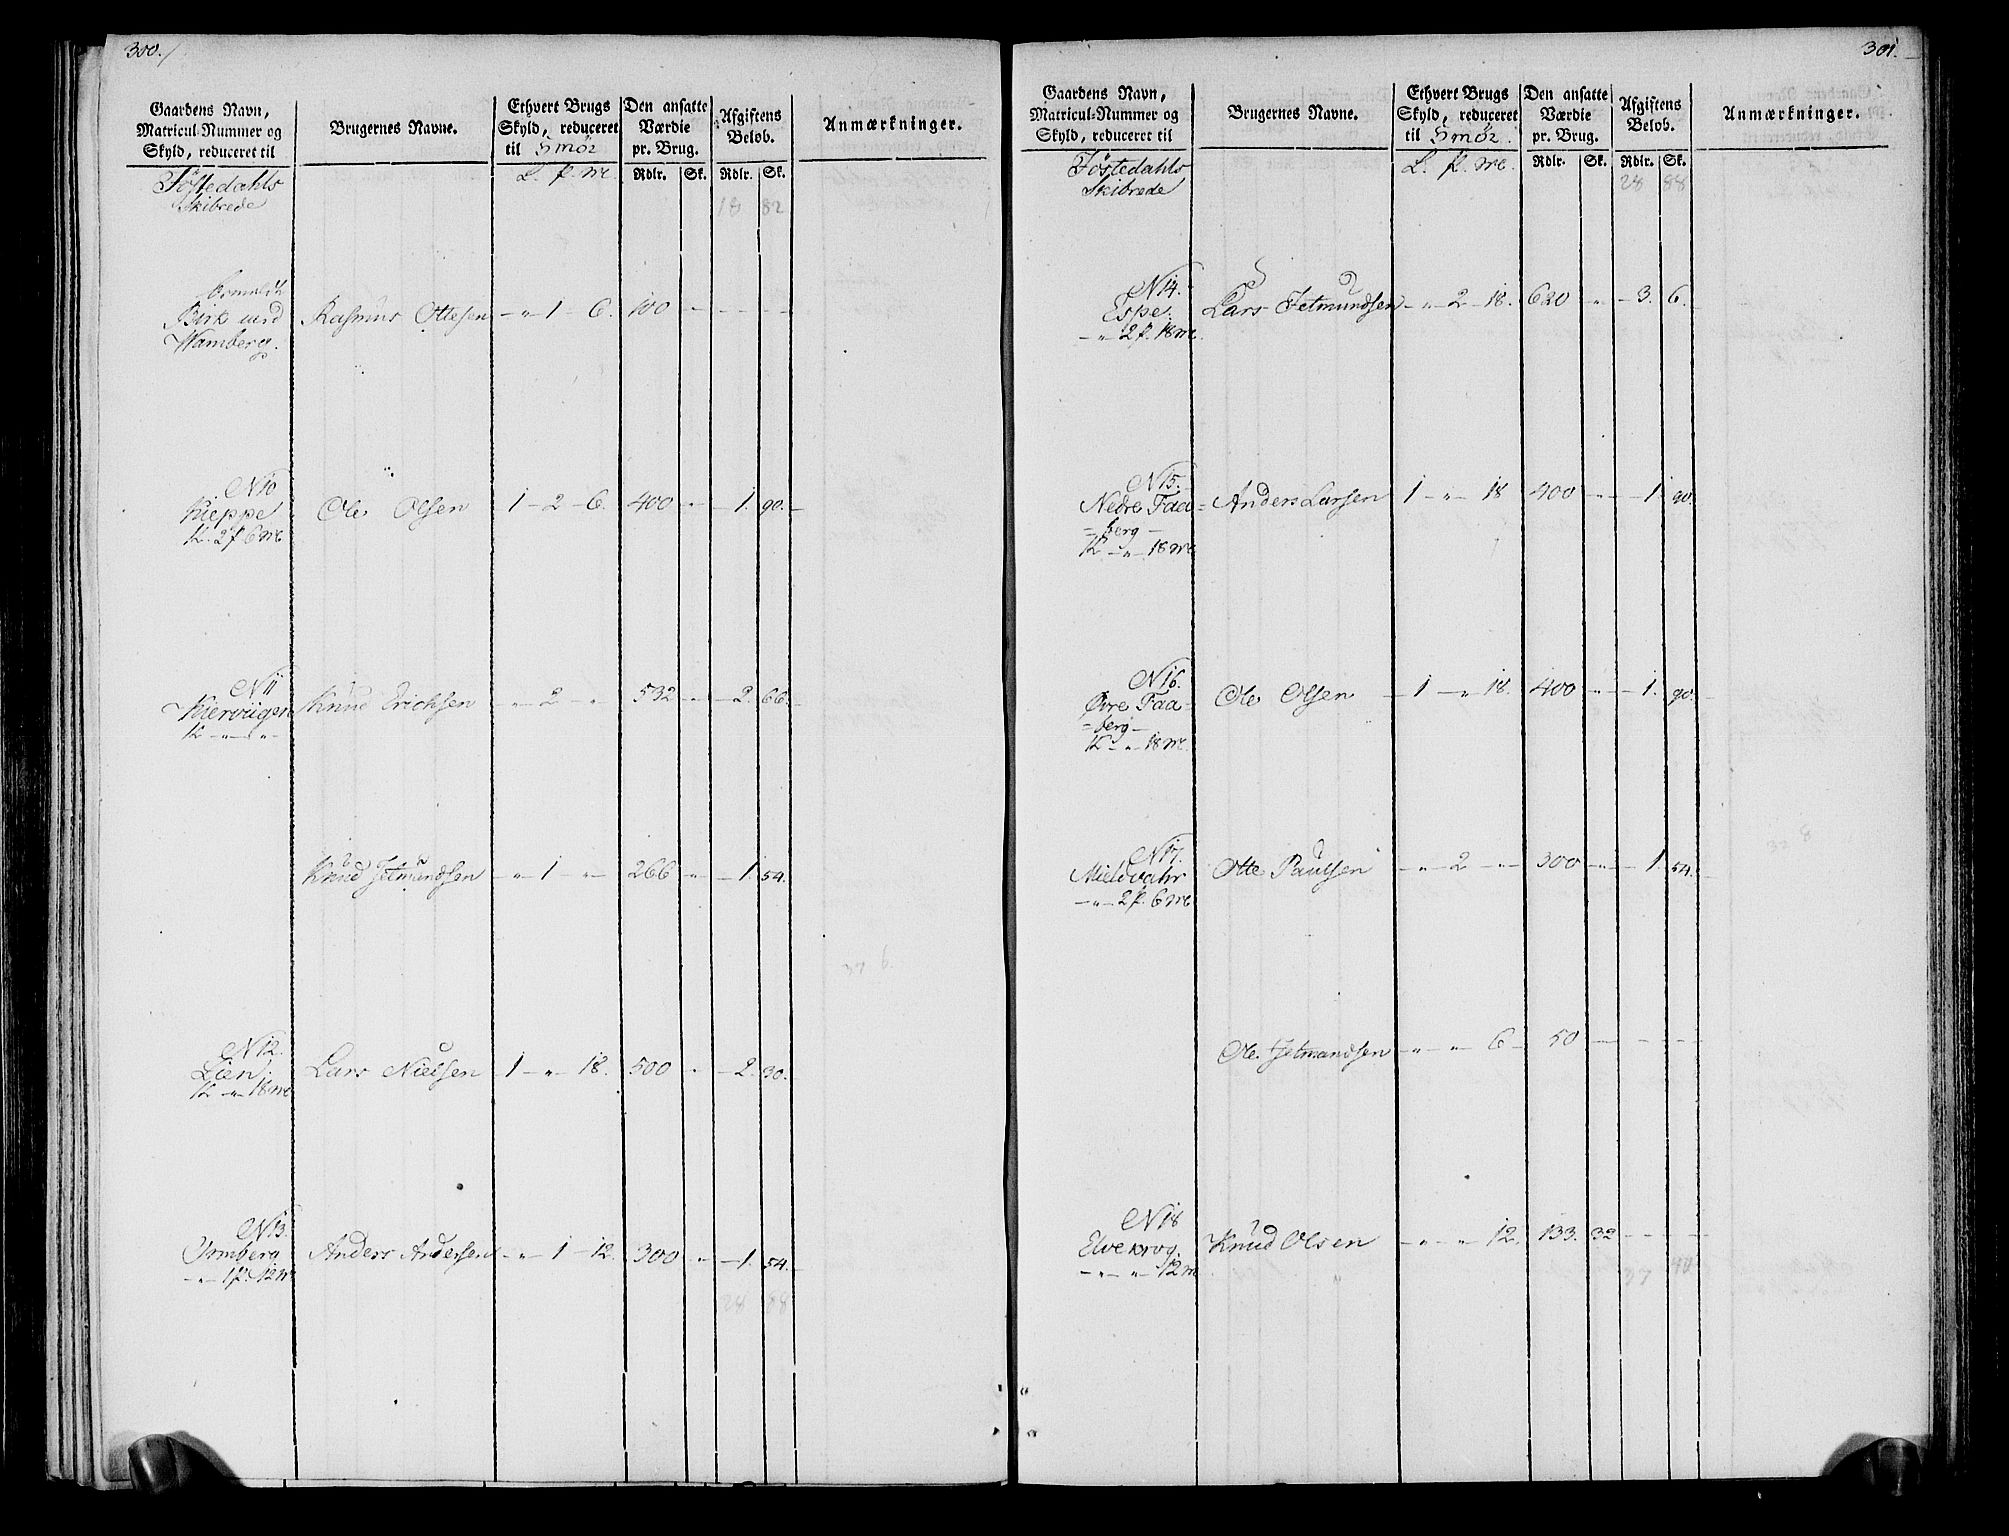 300.
Gaardens Navn,
Matricul-Nummer og
Skyld, reduceret til
Brugernes Navne.
Ethvert Brugs
Skyld, reduceret
til Smör
Den ansatte
Værdie
pr. Brug.
Afgiftens
Beløb.
Anmærkninger.
L. p. mc
Rdlr. Sk. Rdlr. Sk.
Jöstedahls
Skibrede
18 82
Birk
Wamberg.
Rasmus Ottesen - " - 1 - 6. 100 - - - -
N 10
Kieppe
1 L. 2 p 6 mc
Ole Olsen 1 - 2 - 6. 400 - " - 1. 90. -
N 11
Kiervügen
Knud Erichsen " - 2 - " 532 - " - 2. 66. -
Knüd Jetmündsen - " - 1 - " - 266 - " - 1. 54. -
37 6.
N 12.
Lien.
1 L - " - 18 mc
Lars Nielsen 1 - " - 18. 500 - " - 2. 30.
N 13.
Ormberg
- " - 1 p. 12 mc
Anders Andersen - " - 1 - 12. 300 - " - 1. 54. -
28 88
301.
Gaardens Navn,
Matricul-Nummer og
Skyld, reduceret til
Brugernes Navne.
Ethvert Brugs
Skyld, reduceret
til Smör.
Den ansatte
Værdie
pr. Brug.
Afgiftens
Beløb.
Anmærkninger.
L. p. mc.
Rdlr. Sk. Rdlr. Sk.
Jöstedahls
Skibrede
28 88
N 14.
Espe.
- " - 2 p. 18 mc.
Lars Jetmundsen - " - 2 - 18. 620 - " - 3. 6. -
N 15.
Nedre Faa =
= berg -
1 L - " - 18 mc
Anders Larsen 1 - " - 18 400 - " - 1. 90.
N 16.
Øvre Faa =
= berg -
1 L - " - 18 mc.
Ole Olsen - 1 - " 18. 400 - " - 1. 90. -
N 17.
Mieldvahr
- " - 2 p. 6 mc
Otte Paulsen - " - 2 - " - 300 - " - 1. 54. -
32 8
Ole Jetmundsen - " - " 6 - 50 - - - -
N 18
Elvekrog.
- " - " 12 mc
Knud Olsen - " - " 12. 133. 32 - - - -
37